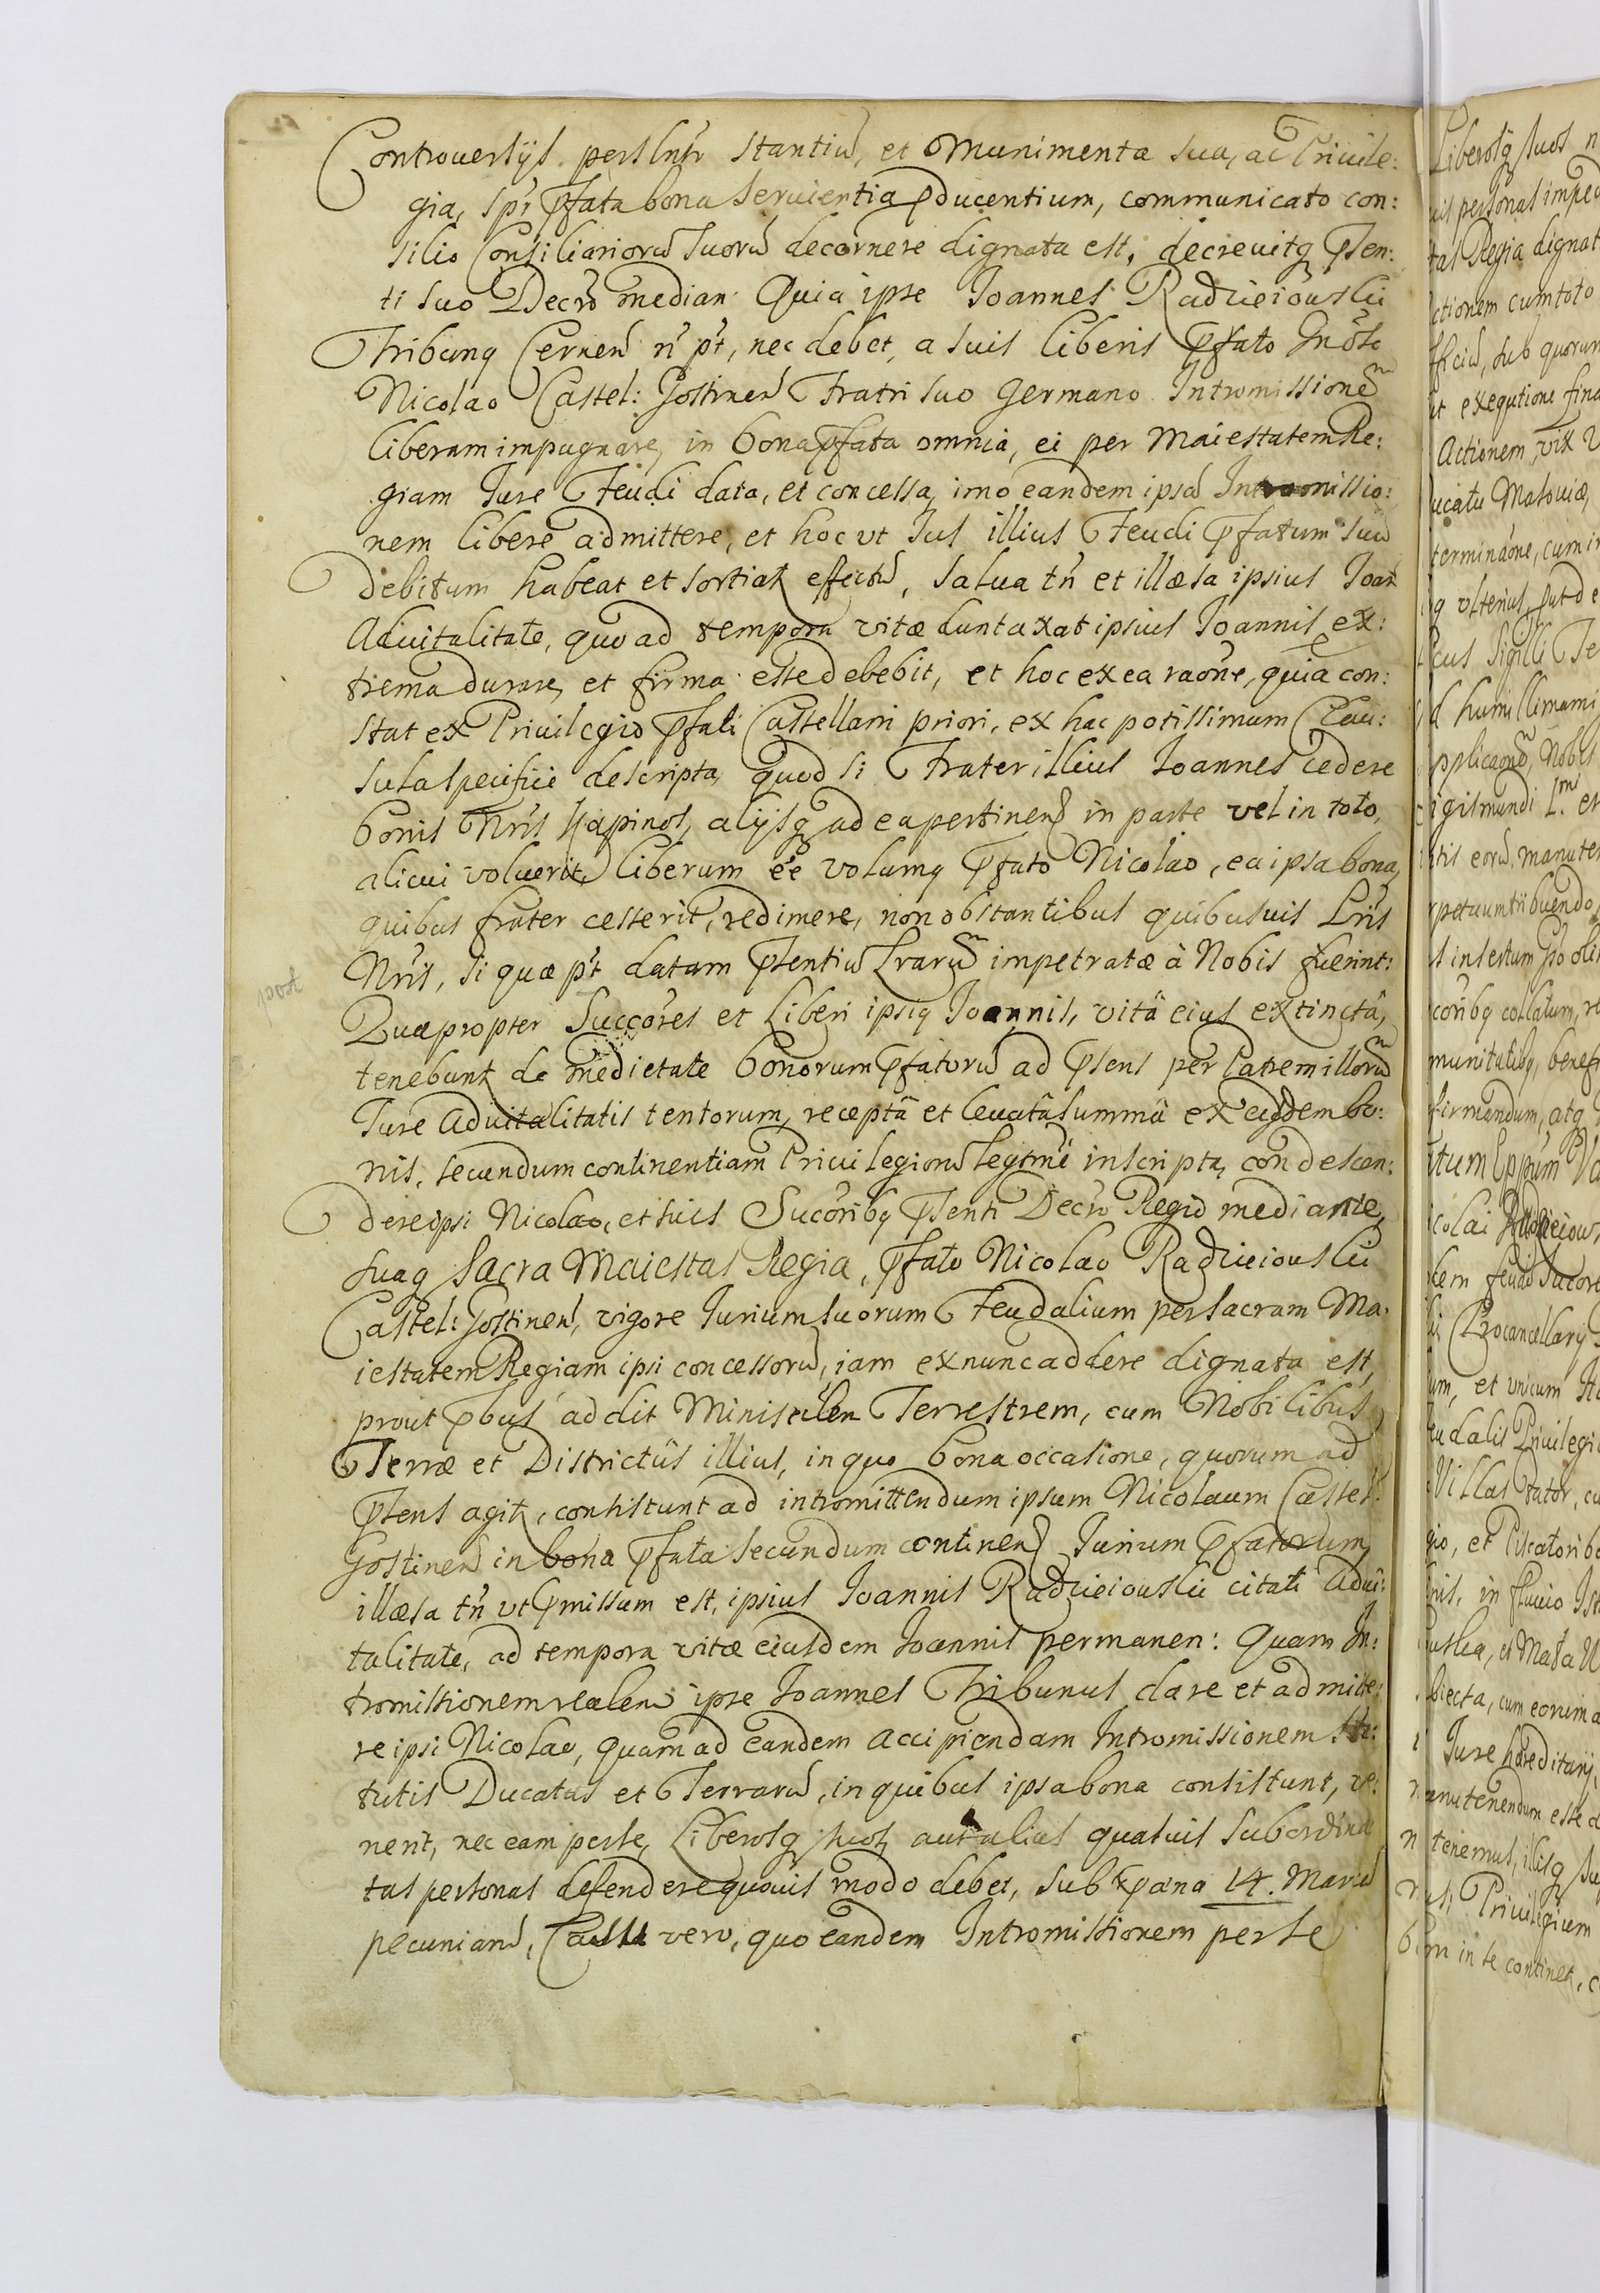 Controuersijs persl̃nr stantiũ, et Munimenta sua, ac Priuile:
gia, spr̃ p̃fata bona seruientia p̱ducentium, communicato con:
silio Consiliariorũ suorũ decernere dignata est, decreuitq; p̃sen:
ti suo Decr̃o median: Quia ipse Joannes Radzieiouskii
Tribung Cernen̄ ñ p̃t, nec debet, a suis liberis p̃fato Gn̄oso
Nicolao Castel: Gostinen̄ Fratri suo Germano Intromissionẽm
liberam impugnare, in bona p̃fata omnia, ei per Maiestatem Re:
giam Jure Feudi data, et concessa, imo eandem ipsã Intromissio:
nem libere admittere, et hoc vt Jus illius Feudi p̃fatum suũ
debitum habeat et sortiatr effectũ, salua tñ et illæsa ipsius Joan
Aduitalitate, quo ad tempora vitæ duntaxat ipsius Joannis ex:
trema durare, et firma esse debebit, et hoc ex ea raõne, quia con:
stat ex Priuilegio p̃fati Castellani priori, ex hac potissimum Clau:
sula specifice descripta, quod si Frater illius Joannes cedere
bonis Nr̃is Kapinos, alijsq; ad ea pertinen̄ in parte vel in toto,
alicui voluerit, liberum eẽ volumq p̃fato Nicolao, ea ipsa bona,
quibus frater cesserit, redimere, non obstantibus quibusuis Lr̃is
Nr̃is, si quæ p̃t datam p̃sentiũ Lrarũm impetratæ à Nobis fuerint:
post
Quapropter Succõres et Liberi ipsiq Joannis, vitâ eius extinctâ,
tenebuntr de medietate bonorum p̃fatorũ ad p̃sens per Patrem illorũm
Jure Aduitalitatis tentorum, receptâ et leuatâ summâ ex eisdem bo:
nis, secundum continentiam Priuilegiorũ legitmẽ inscripta, condescen:
dere ipsi Nicolao, et suis Sucõribq p̃senti Decr̃o Regio mediante,
suaq Sacra Maiestas Regia, p̃fato Nicolao Radzieiouskii
Castel: Gostinen̄, vigore Jurium suorum Feudalium per sacram Ma:
iestatem Regiam ipsi concessorũ, iam ex nunc addere dignata est,
prout p̃bus addit Ministẽlen Terrestrem, cum Nobilibus
Terræ et Districtûs illius, in quo bona occasione, quorum ad
p̃sens agitr, consistunt ad intromittendum ipsum Nicolaum Castel:
Gostinen̄ in bona p̃fata secundum continen̄ Jurium p̃fatorum,
illæsa tñ vt p̃missum est, ipsius Joannis Radzieiouskii citati Adui:
talitate, ad tempora vitæ eiusdem Joannis permanen: Quam In:
tromissionem realem ipse Joannes Tribunus dare et admitte:
re ipsi Nicolao, quam ad eandem accipiendam Intromissionem Sta:
tutis Ducatus et Terrarũ, in quibus ipsa bona consistunt, ve:
nerit, nec eam per se, Liberosq; suos, aut alias quasuis subordina
tas personas defendere quouis modo debet, sub pæna 14. Marcũ
pecuniarũ, Casu vero, quo eandem Intromissionem per se
Liberosq suos
personas imped
tas Regia dignat
ctionem cum toto
ficiũ, sub quorum
et exequtione fina
Actionem, vix
ucatu Masouiæ,
terminaõne, cum
q vlterius, put de
cus Sigilli
humillimam
pplicaoñe, Nobis
igismundi
eorũ, manuten
petuum tribuendo
insertum
coribq collatum,
munitatibq, benefi
firmandum, atq
icolai Radzieiow
Procancellarij
um, et vnicum
udalis Priuilegi
Villas
et Piscatorib
nis, in fluuio
biecta, cum eorum
Jure hæreditarij,
anutenendum esse
tenemus, illisq
Priuilegium
in se continet,